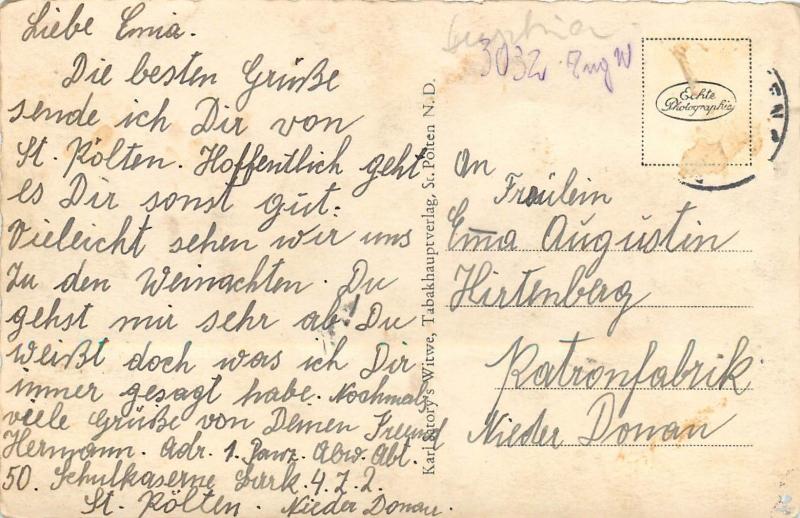 Liebe Emia.
Die besten Grüße
sende ich Dir von
St. Pölten. Hoffentlich geht
es Dir sonst gut:
Vieleicht sehen wir uns
Zu den Weinachten. Du
gehst mir sehr ab! Du
Weißt doch was ich Dir
immer gesagt habe. Nochmals
viele Grüße von Deinen Freund
Hermann. Adr. 1. Panz. Abw. Abt.
50. Schulkaserne 4.7.2.
St. Pölten. Nieder Donau.
Karl Story's Witwe, Tabakhauptverlag, St. Pölten N. D.
3032
Echte
Photographie
An
Fräulein
Ema Augustin
Hirtenberg
Patronfabrik
Nieder Donau